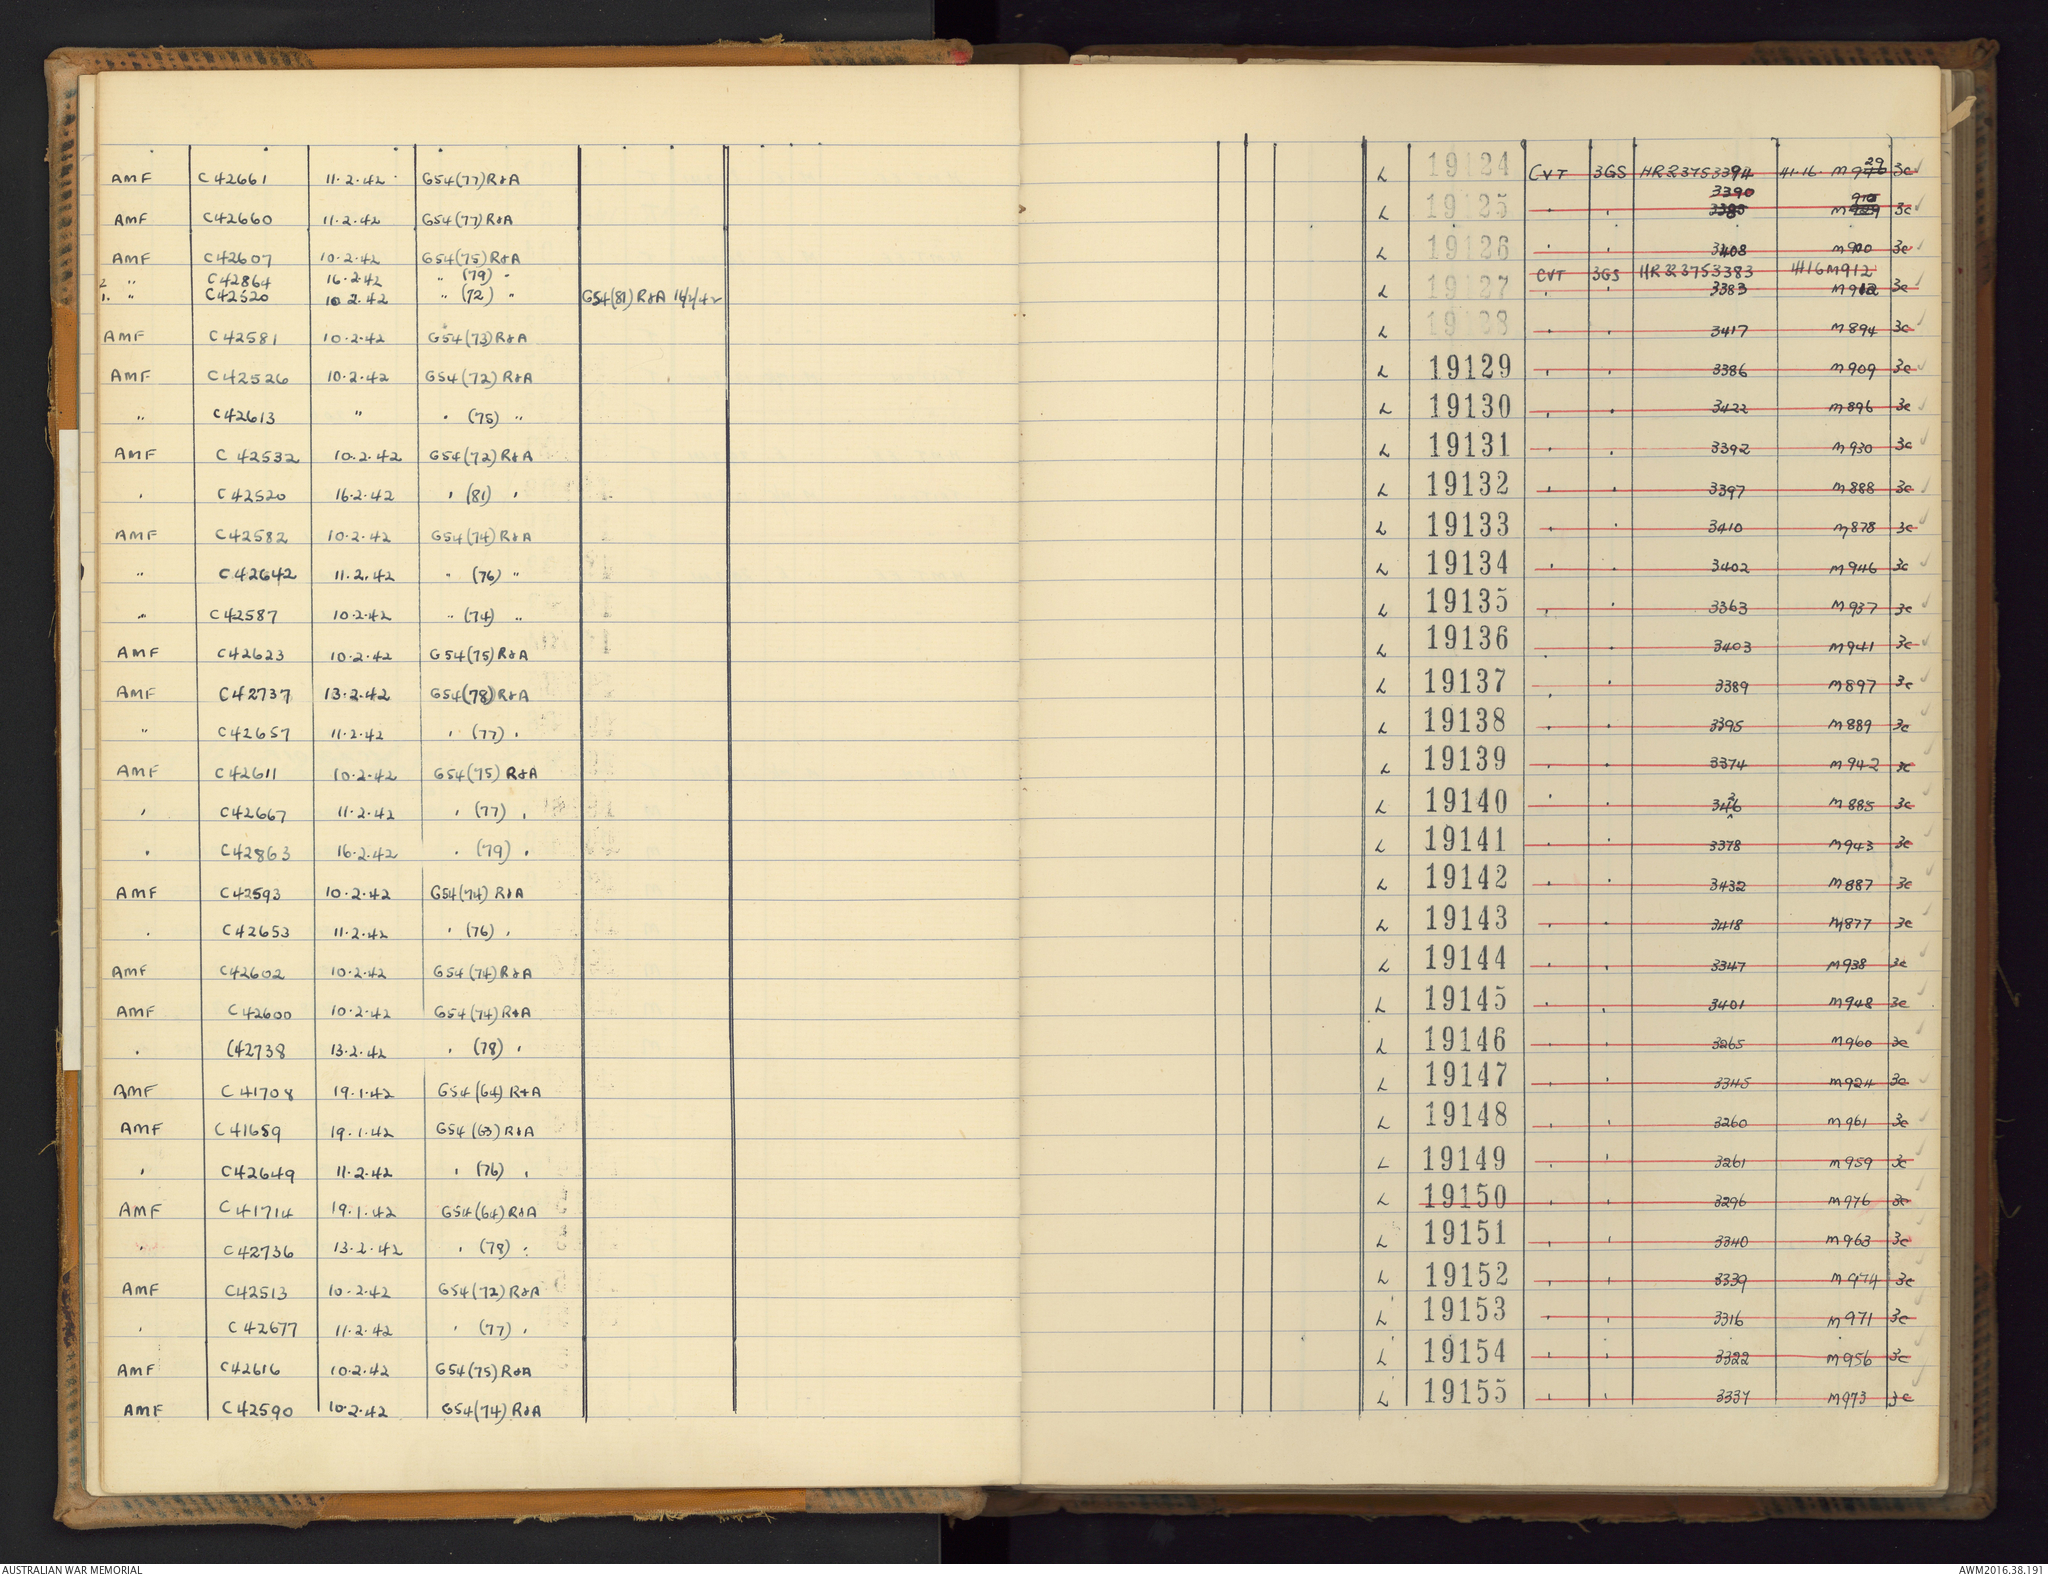 AMF C42661 11.2.42 G54(77)R&A
AMF C42660 11.2.42 G54(77)R&A
AMF C42607 10.2.42 G54(75)R&A
2 " C42864 16.2.42 " (79) "
1. " C42520 10.2.42 " (72) " G54(81)R&A
AMF C42581 10.2.42 G54(73)R&A
AMF C42526 10.2.42 G54(72)R&A
" C42613 " " (75) "
AMF C42532 10.2.42 G54(72)R&A
" C42520 16.2.42 " (81) "
AMF C42582 10.2.42 G54(74)R&A
" C42642 11.2.42 " (76) "
" C42587 10.2.42 " (74) "
AMF C42623 10.2.42 G54(75)R&A
AMF C42737 13.2.42 G54(78)R&A
" C42657 11.2.42 " (77) "
AMF C42611 10.2.42 G54(75) R&A
" C42667 11.2.42 " (77) "
" C42863 16.2.42 " (79) "
AMF C42593 10.2.42 G54(74) R&A
" C42653 11.2.42 " (76) "
AMF C42602 10.2.42 G54(74)R&A
AMF C42600 10.2.42 G54(74)R&A
" C42738 13.2.42 " (78) "
AMF C41708 19.1.42 G54(64)R&A
AMF C41659 19.1.42 G54(63)R&A
" C42649 11.2.42 " (76) "
AMF C41714 19.1.42 G54(64)R&A
" C42736 13.2.42 " (78) "
AMF C42513 10.2.42 G54(72)R&A
" C42677 11.2.42 " (77) "
AMF C42616 10.2.42 G54(75)R&A
AMF C42590 10.2.42 G54(74)R&A
L 19124 CVT 3GS HR 3753394 41.16. M929 3c
L 19125 " " 3390 3c
L 19126 " " 3408 M900 3c
CVT 3GS 3753383 4116M912
L 19127 " " 3383 M912 3c
L 19128 " " 3417 M894 3c
L 19129 " " 3386 M909 3c
L 19130 " " 3422 M896 3c
L 19131 " " 3392 M930 3c
L 19132 " " 3397 M888 3c
L 19133 " " 3410 M878 3c
L 19134 " " 3402 M946 3c
L 19135 " " 3363 M937 3c
L 19136 " " 3403 M941 3c
L 19137 " " 3389 M897 3c
L 19138 " " 3395 M889 3c
L 19139 " " 3374 M942 3c
L 19140 " " M885 3c
L 19141 " " 3378 M943 3c
L 19142 " " 3432 M887 3c
L 19143 " " 3418 M877 3c
L 19144 " " 3347 M938 3c
L 19145 " " 3401 M948 3c
L 19146 " " 3265 M960 3c
L 19147 " " 3345 M924 3c
L 19148 " " 3260 M961 3c
L 19149 " " 3261 M959 3c
L 19150 " " 3296 M976 3c
L 19151 " " 3340 M963 3c
L 19152 " " 3339 M974 3c
L 19153 " " 3316 M971 3c
L 19154 " " 3322 M956 3c
L 19155 " " 3337 M973 3c
AUSTRALIAN WAR MEMORIAL
AWM2016.38.191